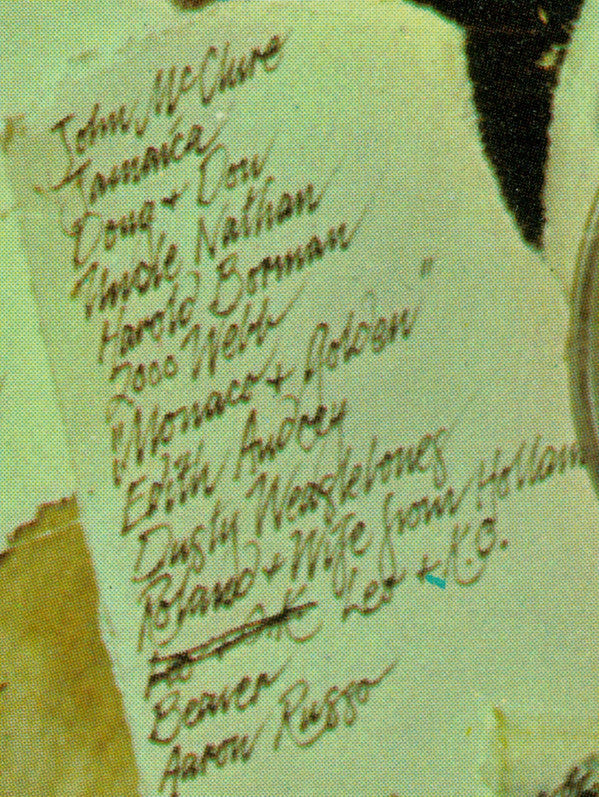 John McClure
Jamaica
Doug + Don
Uncle Nathan
Harold Borman
2000 Webb
"Monaco + Golden"
Edith Audrey
Dusty Weaglebones
Roland + Wife from Hollan
Leo + K.O.
Beaver
Aaron Russo